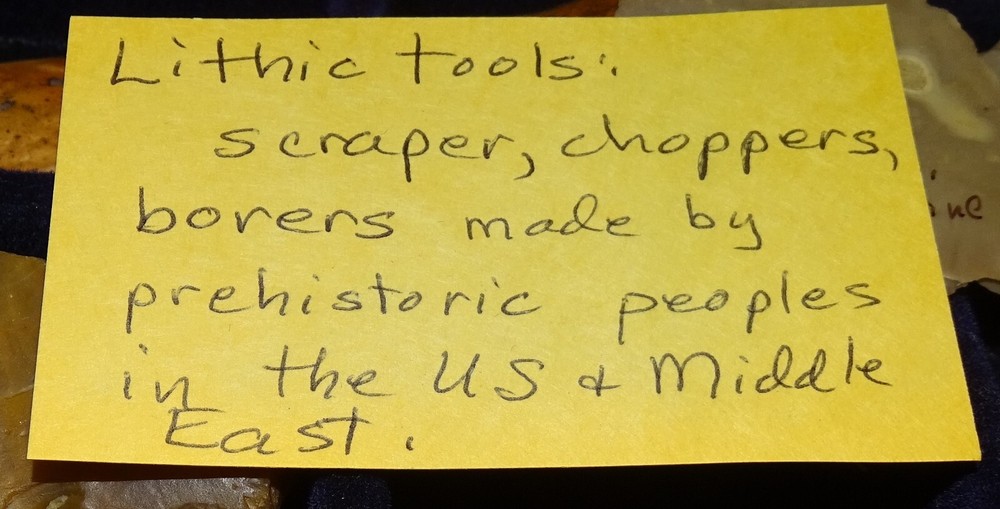 Lithic tools:
scraper, choppers,
borers made by
prehistoric peoples
in the US & Middle
East.